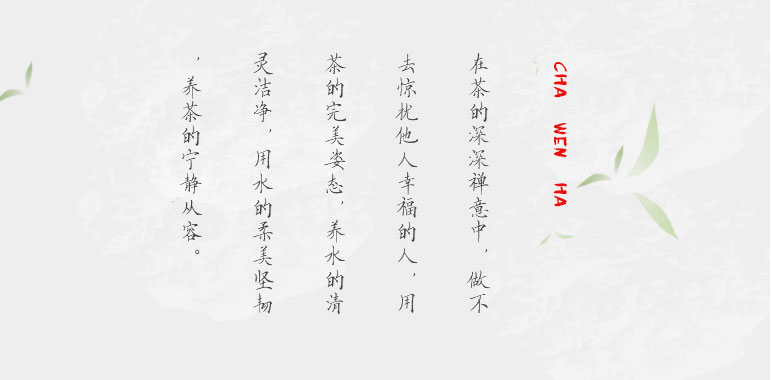 CHA WEN HA
在茶的深深禅意中，做不
去惊扰他人幸福的人，用
茶的完美姿态，养水的清
灵洁净，用水的柔美坚韧
，养茶的宁静从容。